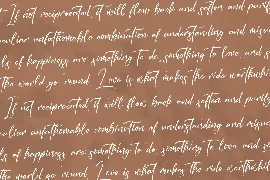 If not reciprocated it will flow back and soften and purify
uliar unfathomable combination of understanding and misun
ls of happiness are: something to do, something to love and s
the world go 'round. Love is what makes the ride worthwhile
If not reciprocated it will flow back and soften and purify
uliar unfathomable combination of understanding and misun
ls of happiness are: something to do, something to love and s
the world go 'round. Love is what makes the ride worthwhile